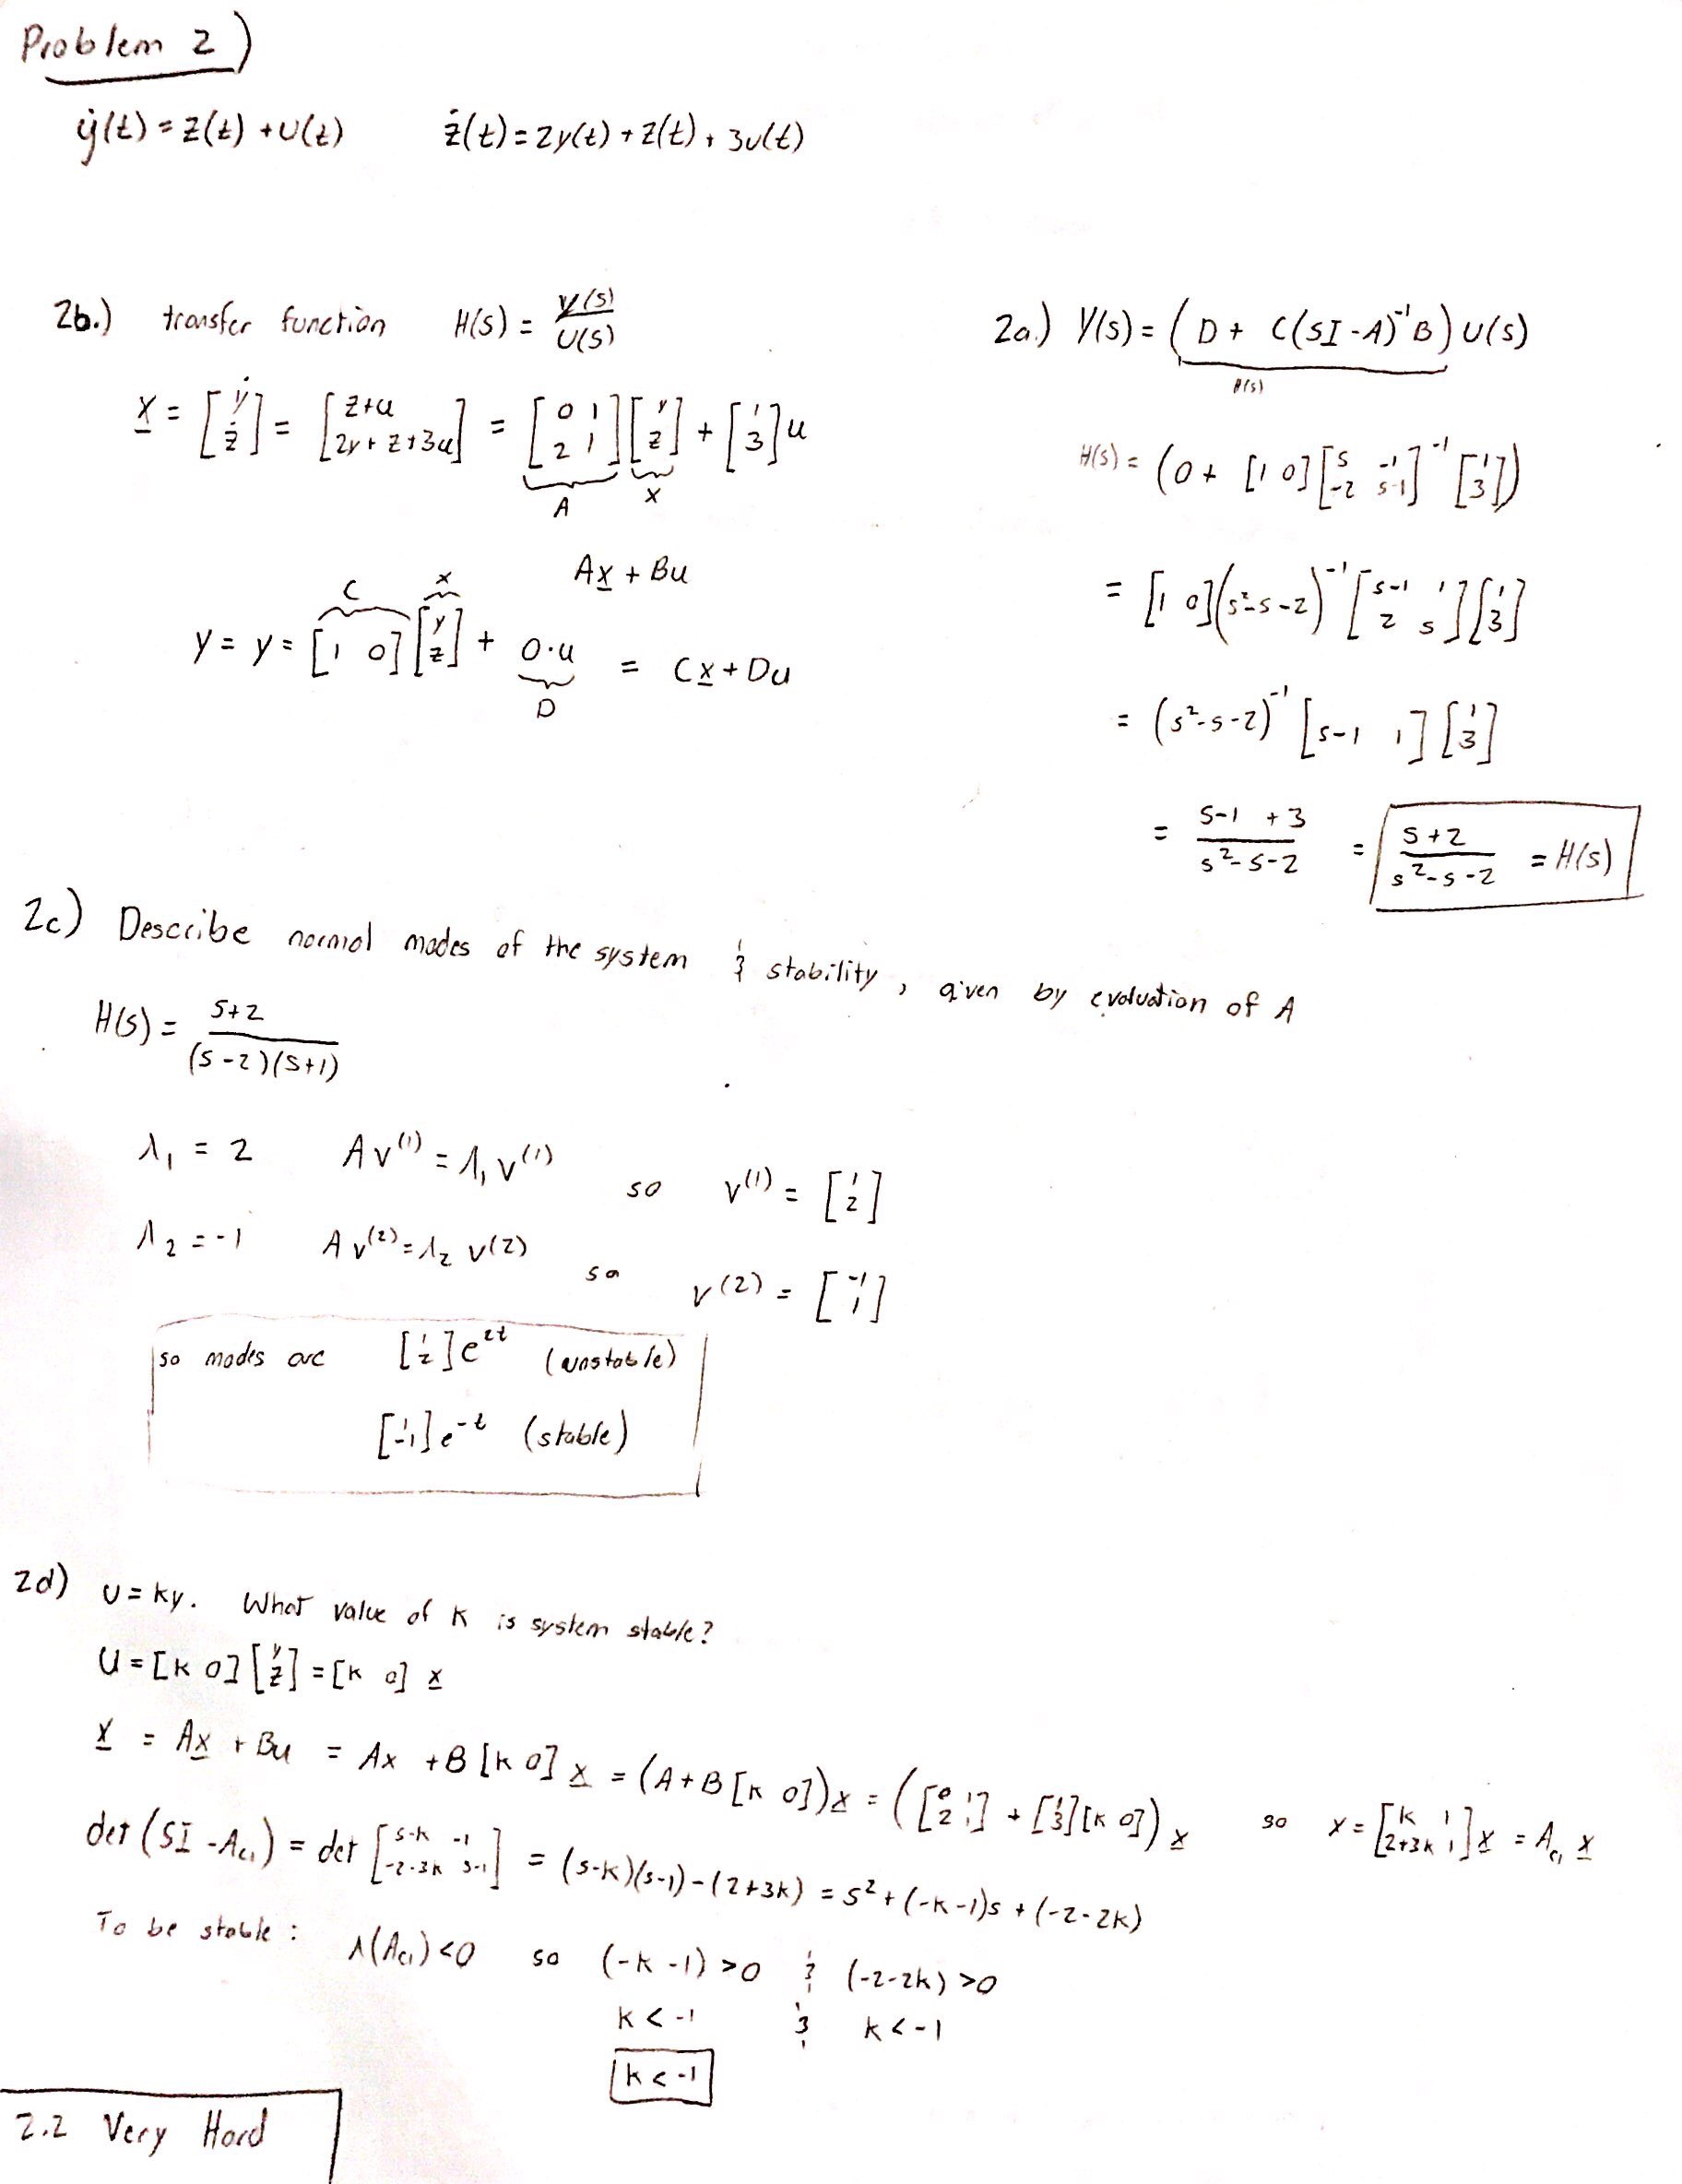 Problem 2)
ẏ(t) = z(t) + u(t)   ż(t) = 2y(t) + z(t) + 3u(t)
2b.) transfer function H(s) = Y(s)/U(s)
x = [ẏ; ż] = [z+u; 2y+z+3u] = [0 1; 2 1][y; z] + [1; 3]u
A x
Ax + Bu
C x
y = y = [1 0][y; z] + 0·u = Cx + Du
D
2a.) Y(s) = (D + C(sI - A)⁻¹B) U(s)
H(s)
H(s) = (0 + [1 0][s -1; -2 s-1]⁻¹ [1; 3])
= [1 0](s²-s-2)⁻¹ [s-1 1; 2 s][1; 3]
= (s²-s-2)⁻¹ [s-1 1][1; 3]
= (s-1 + 3)/(s²-s-2) = (s+2)/(s²-s-2) = H(s)
2c) Describe normal modes of the system & stability, given by evaluation of A
H(s) = (s+2)/((s-2)(s+1))
λ₁ = 2   Av⁽¹⁾ = λ₁v⁽¹⁾ so v⁽¹⁾ = [1; 2]
λ₂ = -1   Av⁽²⁾ = λ₂ v(2) so v⁽²⁾ = [-1; 1]
so modes are [1; 2]e²ᵗ (unstable)
[1; -1]e⁻ᵗ (stable)
2d) u = ky. What value of k is system stable?
u = [k 0][y; z] = [k 0] x
x = Ax + Bu = Ax + B[k 0]x = (A + B[k 0])x = ([0 1; 2 1] + [1; 3][k 0])x so x = [k 1; 2+3k 1]x = A_cl x
det(SI - A_cl) = det[s-k -1; -2-3k s-1] = (s-k)(s-1) - (2+3k) = s² + (-k-1)s + (-2-2k)
To be stable: λ(A_cl) < 0 so (-k-1) > 0 & (-2-2k) > 0
k < -1 & k < -1
k < -1
2.2 Very Hard